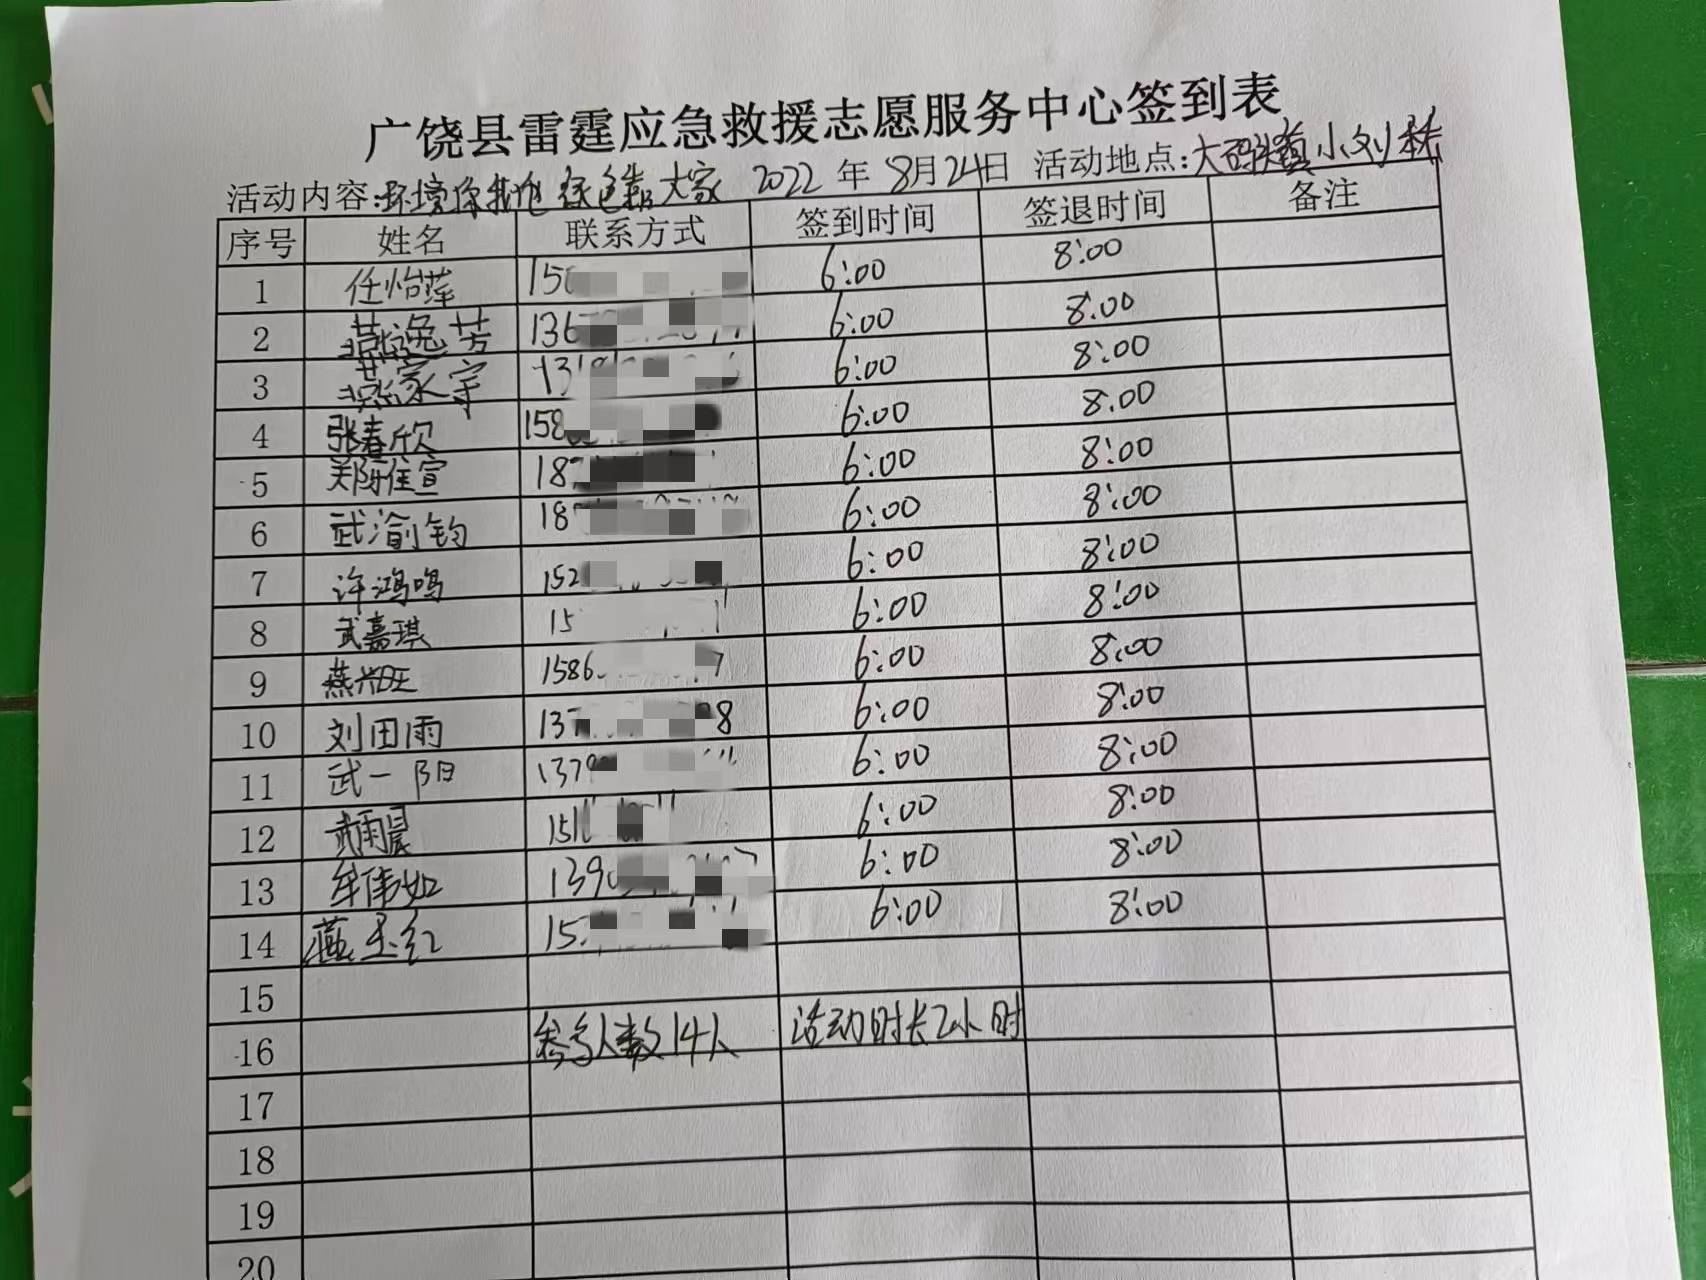 广饶县雷霆应急救援志愿服务中心签到表
活动内容:环境你我他 绿色靠大家 2022年8月24日 活动地点:大码头镇小刘村
序号 姓名 联系方式 签到时间 签退时间 备注
1 任怡萍 150 6:00 8:00
2 燕逸芳 136 6:00 8:00
3 燕家宇 131 6:00 8:00
4 张春欣 158 6:00 8:00
5 郑雅宣 18 6:00 8:00
6 武渝钧 18 6:00 8:00
7 许鸿鸣 152 6:00 8:00
8 武嘉琪 15 6:00 8:00
9 燕兴旺 1586 7 6:00 8:00
10 刘田雨 137 8 6:00 8:00
11 武一阳 1379 6:00 8:00
12 武雨晨 151 6:00 8:00
13 牟伟如 139 6:00 8:00
14 燕玉红 15 6:00 8:00
15
16 参与人数14人 活动时长2小时
17
18
19
20